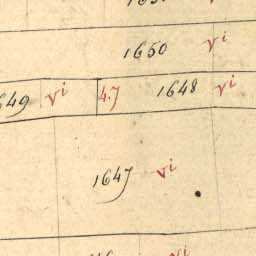 1650 vi
1649 vi 4.7 1648 vi
1647 vi
vi